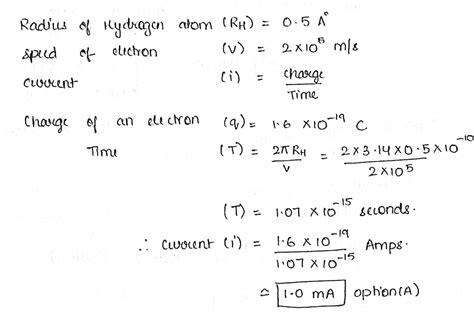 Radius of Hydrogen atom (RH) = 0.5 A°
speed of electron (V) = 2×10^5 m/s
current (i) = charge / Time
Charge of an electron (q) = 1.6 ×10^-19 C
Time (T) = 2πRH / V = 2×3.14×0.5×10^-10 / 2×10^5
(T) = 1.07 ×10^-15 seconds.
∴ Current (i) = 1.6 ×10^-19 / 1.07 ×10^-15 Amps.
≃ 1.0 mA option(A)